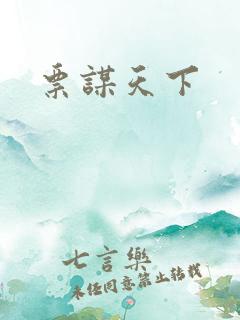 票謀天下
七言樂
未经同意禁止转载